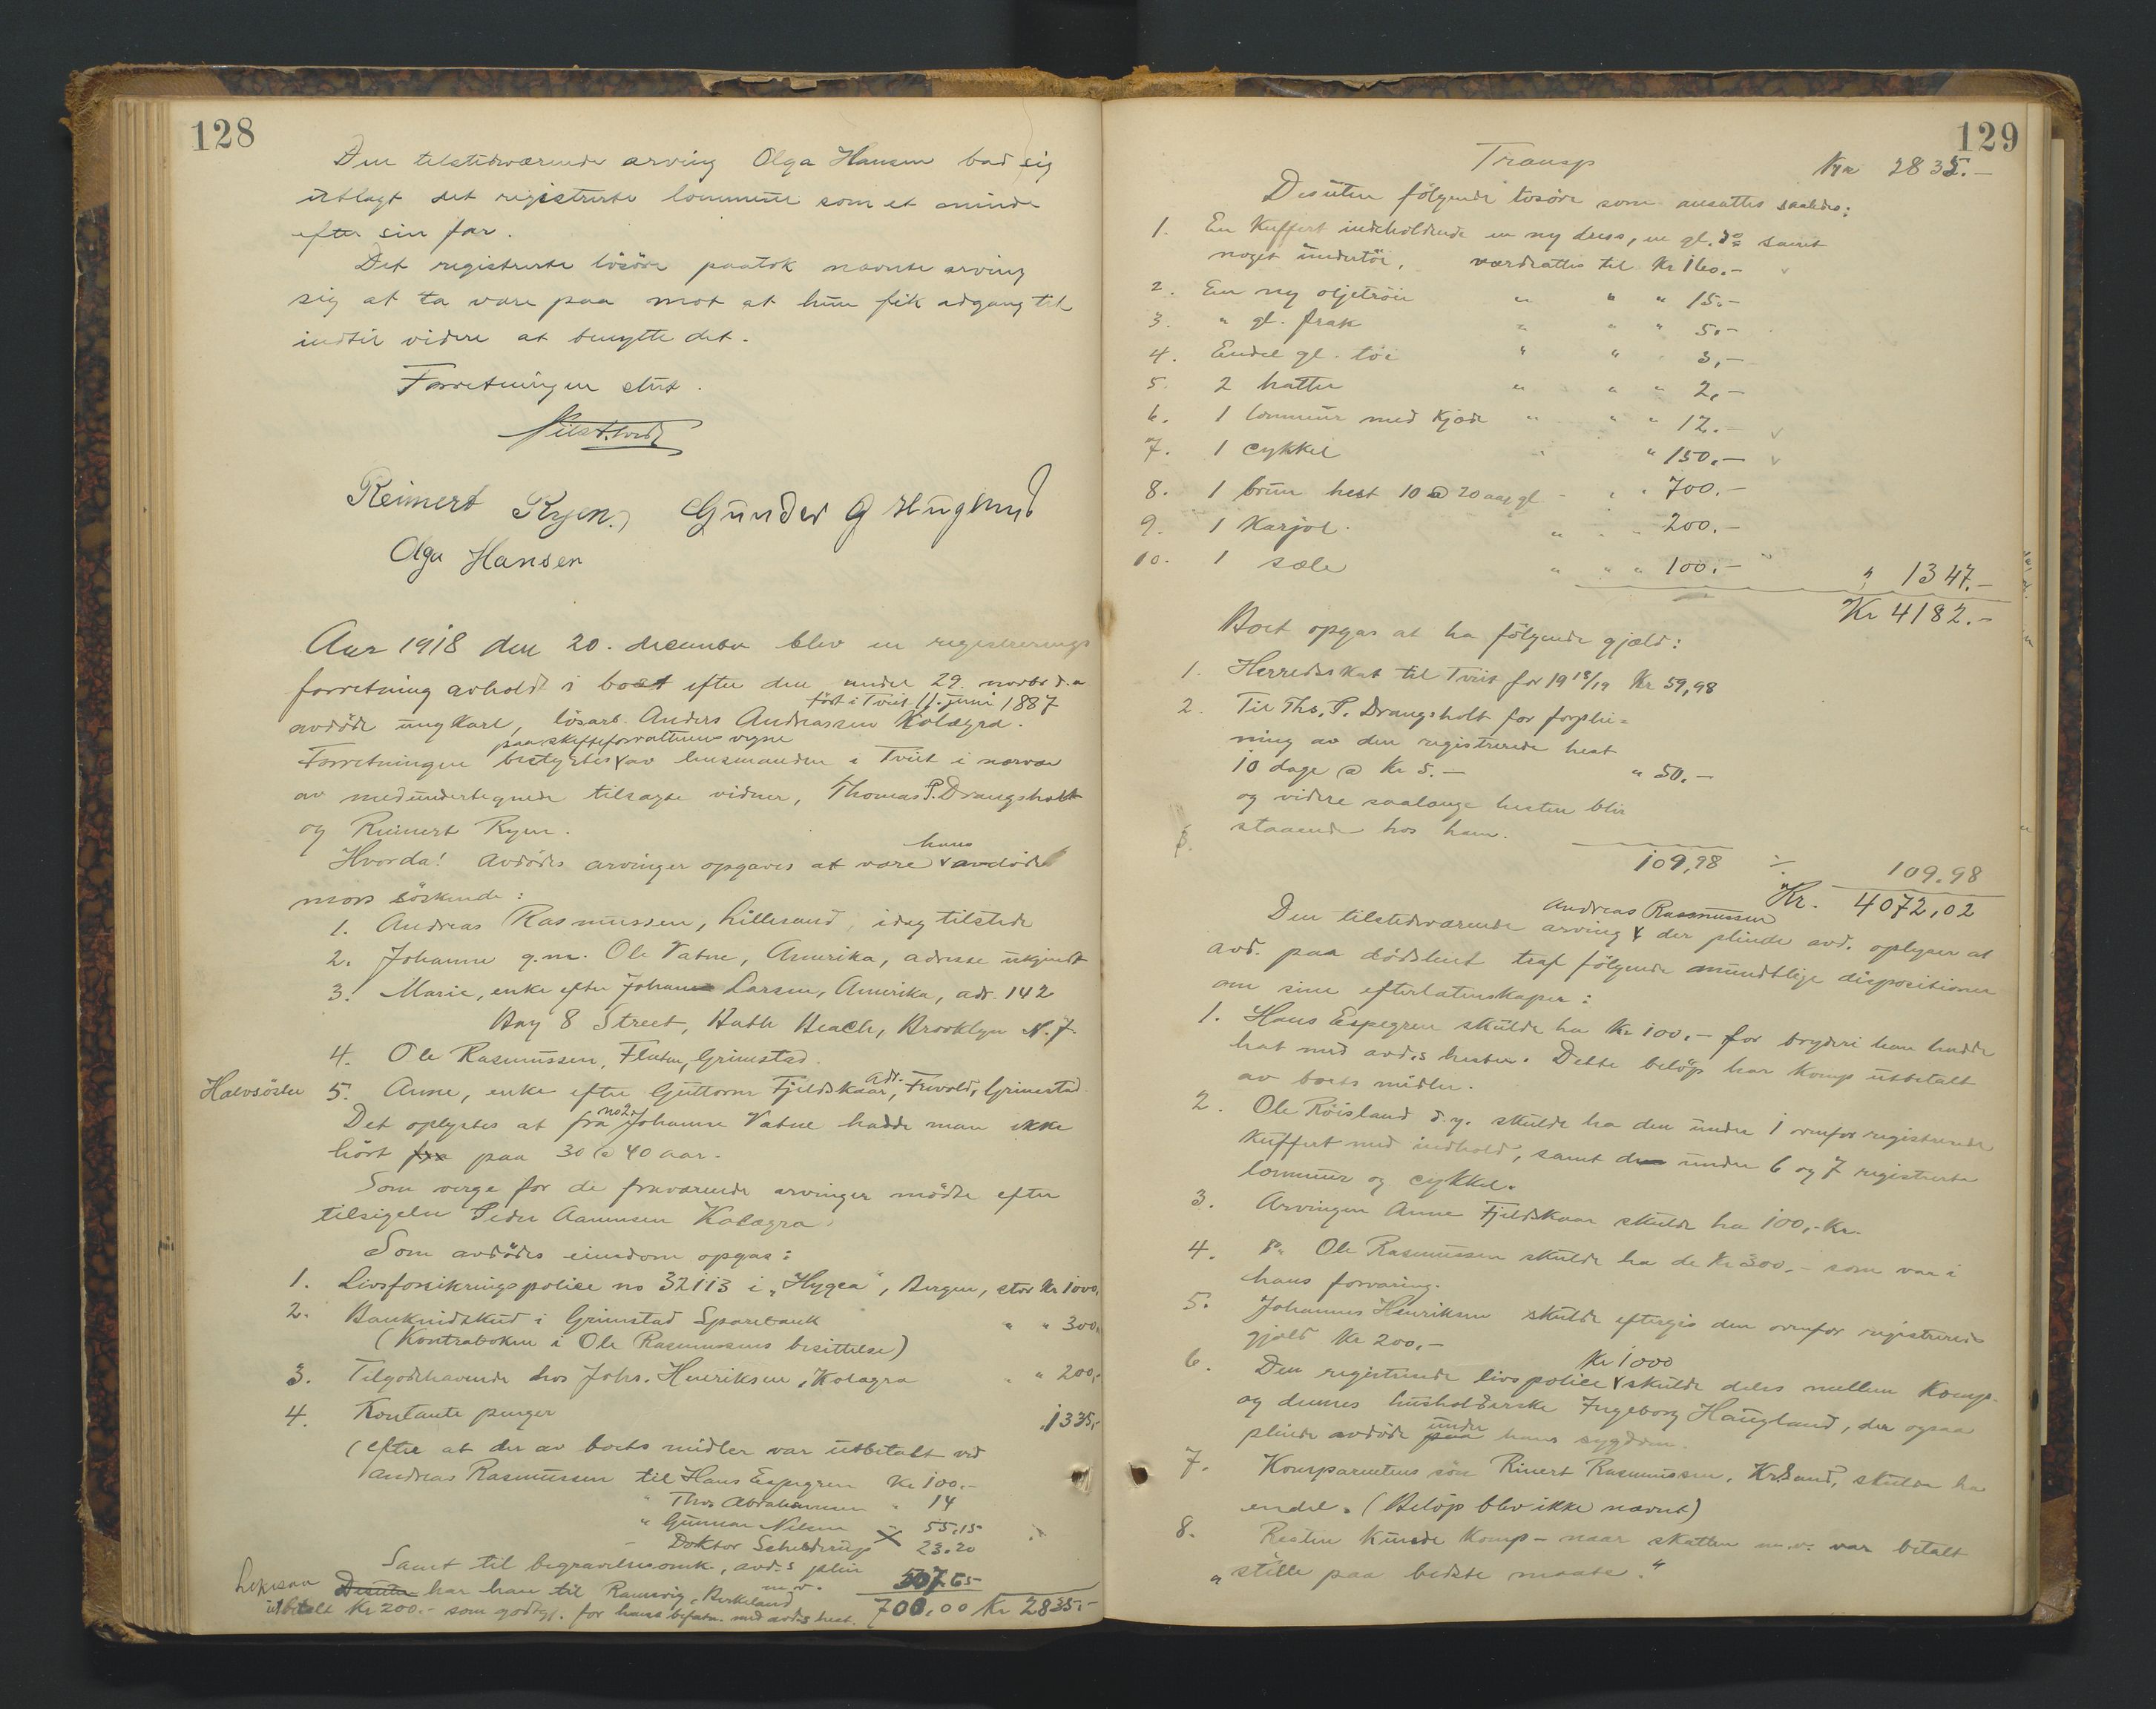 128
Den tilstedværende arving Olga Hansen bad sig
utlagt det registrerte lommeur som et minde
efter sin far.
Det registrerte lösöre paatok nævnte arving
sig at ta vare paa mot at hun fik adgang til
indtil videre at benytte det.
Forretningen slut.
Reinert Ryen. Gunder G Huglund
Olga Hansen
Aar 1918 den 20. december blev en registrerings
forretning avholdt i boet efter den under 29. novbr d.a
avdöde ungkarl, lösarb. Anders Andreassen Kolagra. född i Tveit 11. juni 1887
Forretningen bestyrtes paa skifteforvalterens vegne av lensmanden i Tveit i nærvær
av medundertegnede tilsagte vidner, Thomas P. Drangsholt
og Reinert Ryen.
Hvorda! Avdödes arvinger opgaves at være hans avdöde
mors söskende:
1. Andreas Rasmussen, Lillesand, idag tilstede
2. Johanne g.m. Ole Vatne, Amerika, adresse ukjendt
3. Marie, enke efter Johan Larsen, Amerika, adr. 142
Bay 8 Street, Bath Beach, Brooklyn N.Y.
4. Ole Rasmussen, Grimstad
Halvsöster 5. Anne, enke efter Guttorm Fjeldskaar, adr. Frivold, Grimstad
Det oplystes at fra no 2 Johanne Vatne hadde man ikke
hört fra paa 30 @ 40 aar.
Som verge for de fraværende arvinger mödte efter
tilsigelse Peder Aanensen Kolagra
Som avdödes eiendom opgas:
1. Livsforsikringspolice no 32113 i "Hygea", Bergen, stor Kr 1000,
2. Bankindskud i Grimstad Sparebank " " 300,
(Kontraboken i Ole Rasmussens besittelse)
3. Tilgodehavende hos Johs. Henriksen, Kolagra " " 200,-
4. Kontante penger 1335,-
(efter at der av boets midler var utbetalt ved
Andreas Rasmussen til Hans Espegren Kr 100.-
" Thos Abrahamsen " 14
" Gunnar Nilsen " 55,15
Doktor Schelderup X 23.20
Samt til begravelsesomk, avd.s pleie m.v. 507.65
Likesaa Desuten har han til Ramsvig, Birkeland
utbetalt Kr 200.- som godtgj. for hans befatn. med avd.s hest. 700,00 Kr 2835.-
129
Transp Kr 2835.-
Desuten følgende løsøre som ansattes saaledes:
1. En Kuffert indeholdende en ny dress, en gl. do samt
noget undertöi, værdsattes til Kr 160.-
2. En ny oljetröie " " " 15.-
3. " gl. frak " " " 5.-
4. Endel gl. töi " " 3,-
5. 2 hatter " " " 2,-
6. 1 lommeur med kjæde " " " 12.-
7. 1 cykkel " " 150.-
8. 1 brun hest 10 @ 20 aar gl " " 700.-
9. 1 Karjol " " " 200.-
10. 1 sæle " " " 100.- " 1347.-
Kr 4182.-
Boet opgas at ha fölgende gjæld:
1. Herredsskat til Tveit for 1918/19 Kr 59,98
2. Til Ths. P. Drangsholt for forplei=
ning av den registrerede hest
10 dage @ Kr 5.- " 50.-
og videre saalænge hesten blir
staaende hos ham.
109,98 ÷ 109.98
Kr. 4072,02
Den tilstedværende arving Andreas Rasmussen der pleiede avd. oplyser at
avd. paa dödsleiet traf fölgende mundtlige dispositioner
om sine efterlatenskaper:
1. Hans Espegren skulde ha Kr 100.- for bryderi han hadde
hat med avd.s hester. Dette belöp har Komp utbetalt
av boets midler.
2. Ole Röisland d.y. skulde ha den under 1 ovenfor registrerede
kuffert med indhold, samt den under 6 og 7 registrerte
lommeur og cykkel.
3. Arvingen Anne Fjeldskaar skulde ha 100,- Kr.
4. Do Ole Rasmussen skulde ha de Kr 300.- som var i
hans forvaring.
5. Johannes Henriksen skulde eftergis den ovenfor registrerede
gjæld Kr 200.-
6. Den registrerede livspolice Kr 1000 skulde deles mellem Komp.
og dennes husholderske Ingeborg Haugland, der ogsaa
pleiede avdöde paa under hans sygdom.
7. Komparentens sön Reinert Rasmussen, Kr.Sand, skulde ha
endel. (Belöp blev ikke nævnt)
8. Resten kunde Komp - naar skatten m.v. var betalt
"stelle paa bedste maate."